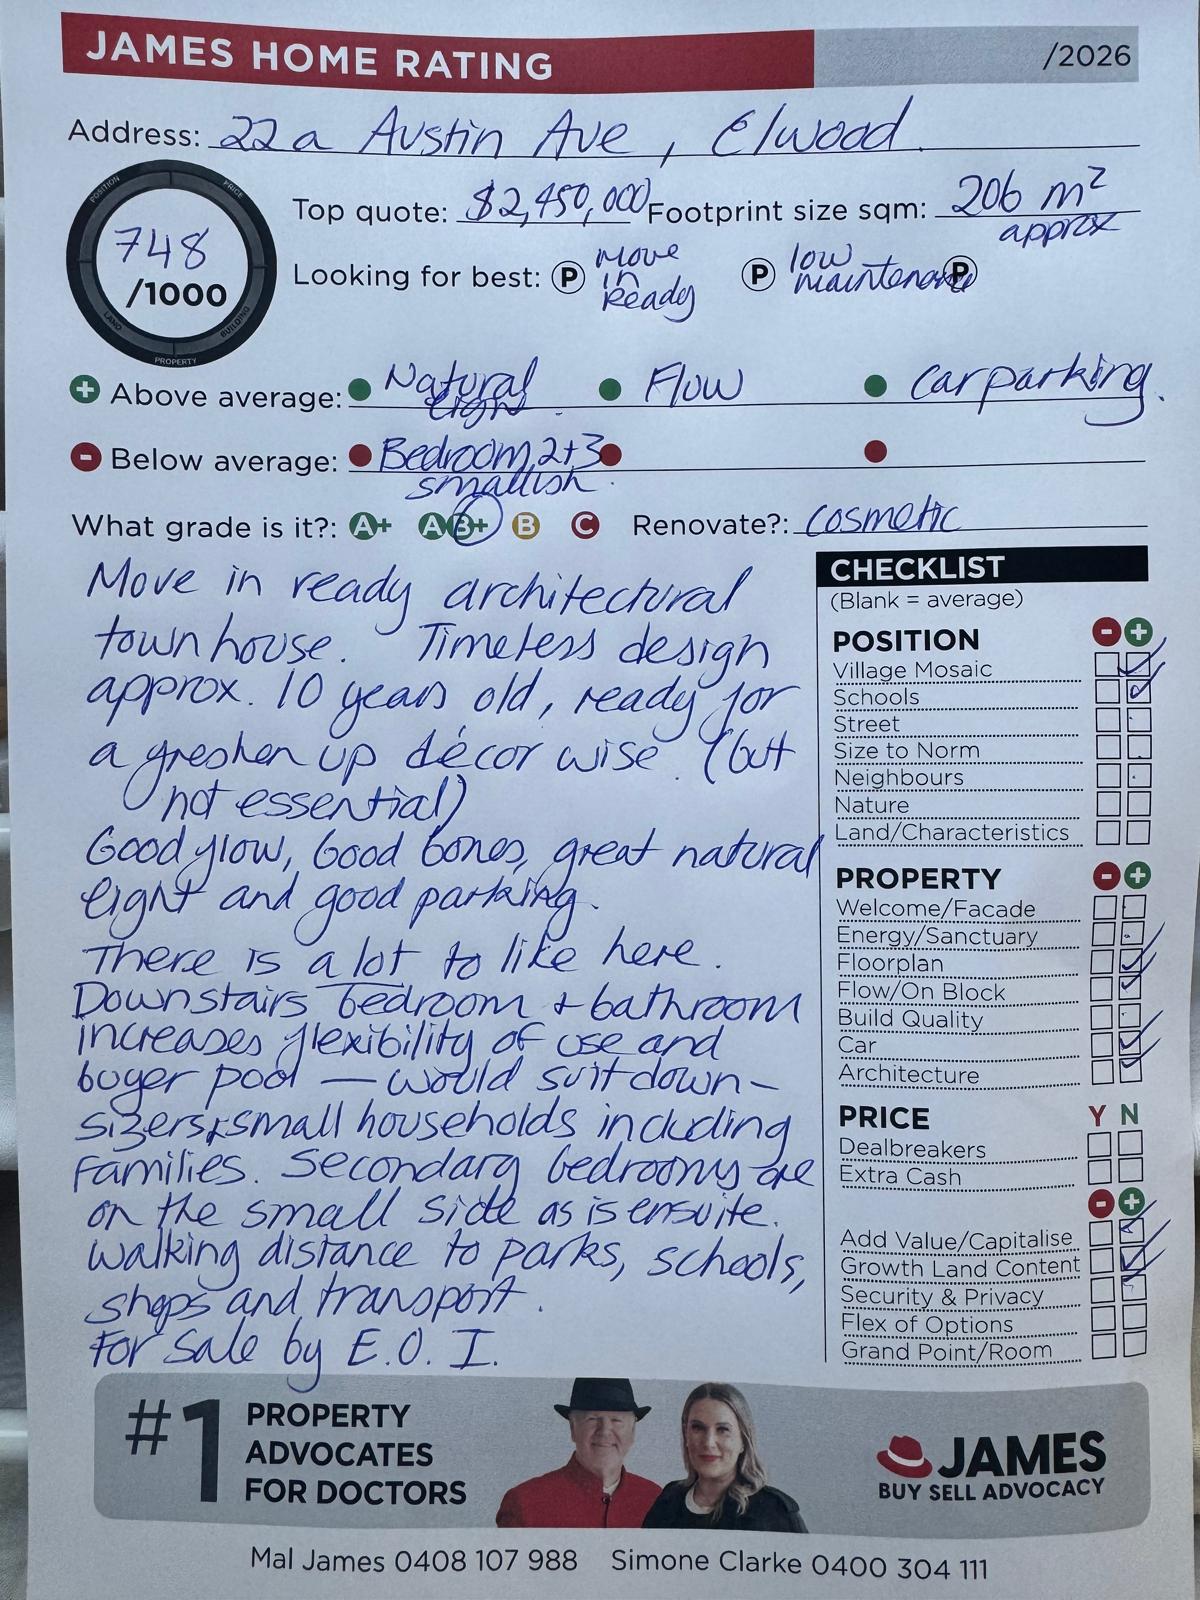 JAMES HOME RATING /2026
Address: 22a Austin Ave, Elwood.
POSITION PRICE
748
/1000
LAND BUILDING
PROPERTY
Top quote: $2,450,000 Footprint size sqm: 206 m² approx
Looking for best: P Move in Ready P low maintenance P
+ Above average: Natural light. Flow Carparking.
- Below average: Bedroom 2+3 smallish.
What grade is it?: A+ A B+ B C Renovate?: Cosmetic
Move in ready architectural
townhouse. Timeless design
approx. 10 years old, ready for
a freshen up décor wise. (but
not essential)
Good flow, Good bones, great natural
light and good parking.
There is a lot to like here.
Downstairs bedroom + bathroom
increases flexibility of use and
buyer pool — would suit down-
sizers, small households including
families. Secondary bedrooms are
on the small side as is ensuite.
Walking distance to parks, schools,
shops and transport.
For Sale by E.O.I.
CHECKLIST
(Blank = average)
POSITION - +
Village Mosaic
Schools
Street
Size to Norm
Neighbours
Nature
Land/Characteristics
PROPERTY - +
Welcome/Facade
Energy/Sanctuary
Floorplan
Flow/On Block
Build Quality
Car
Architecture
PRICE Y N
Dealbreakers
Extra Cash
- +
Add Value/Capitalise
Growth Land Content
Security & Privacy
Flex of Options
Grand Point/Room
#1 PROPERTY
ADVOCATES
FOR DOCTORS
JAMES
BUY SELL ADVOCACY
Mal James 0408 107 988 Simone Clarke 0400 304 111